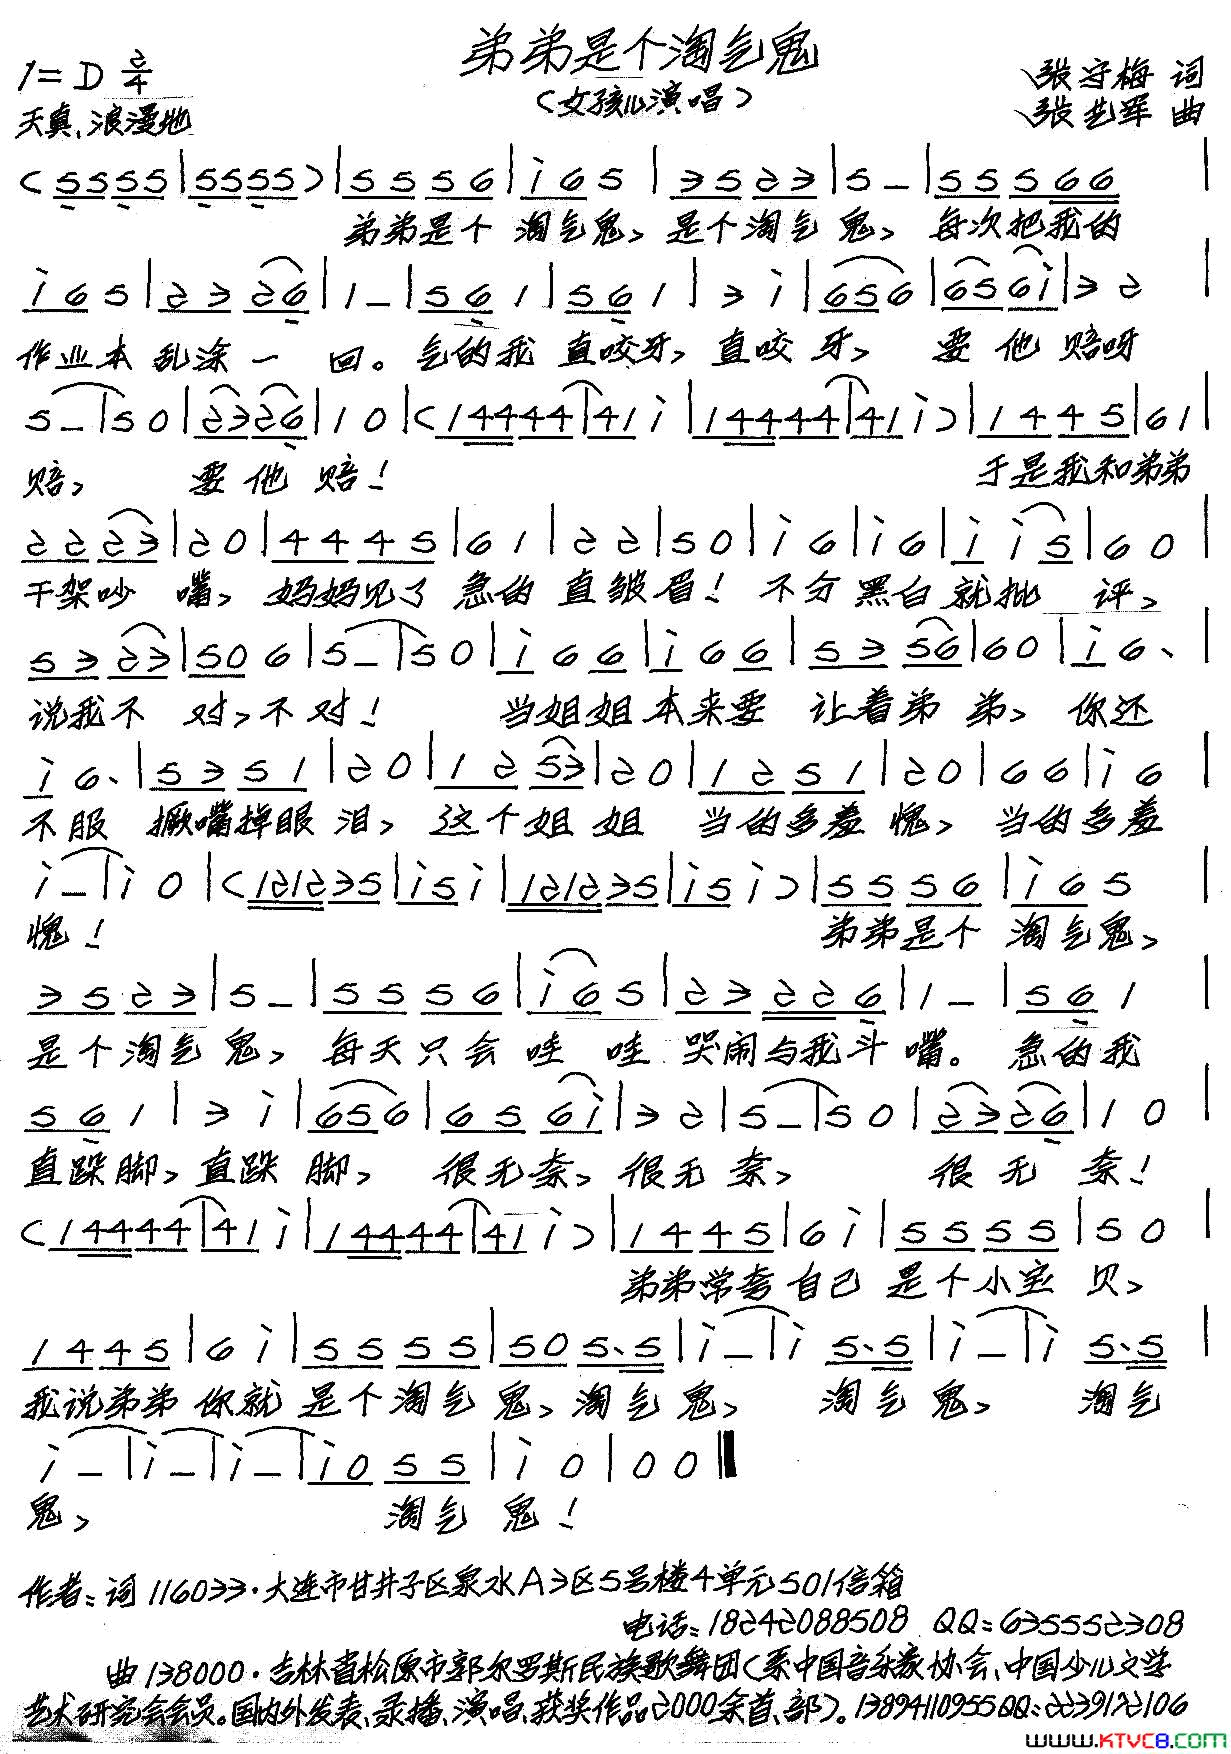 弟弟是个淘气鬼
1=D 2/4
(女孩儿演唱)
张守梅 词
天真、浪漫地
张艺军 曲
(5555|5555)|5556|i65|3523|5-|55566|
弟弟是个 淘气鬼、是个淘气 鬼、 每次把我的
i65|2326|1-|561|561|3i|656|656i|32
作业本 乱涂一 回。气的我 直咬牙,直咬 牙, 要 他 赔呀
5-|50|2326|10|(14444|41i|14444|41i)|1445|61|
赔, 要 他 赔! 于是我和弟弟
2223|20|4445|61|22|50|i6|i6|ii5|60|
干架吵 嘴,妈妈见了 急的 直皱眉!不分 黑白就批 评、
5323|506|5-|50|i66|i66|5356|60|i6、|
说我不 对,不对! 当姐姐 本来要 让着弟 弟、你还
i6、|5351|20|1253|20|1251|20|66|i6
不服 撅嘴掉眼 泪、这个姐 姐 当的多羞 愧、当的多羞
i-|i0|(121235|i5i|121235|i5i)|5556|i65|
愧! 弟弟是个 淘气鬼、
3523|5-|5556|i65|23226|1-|561|
是个淘气 鬼、每天只会 哇 哇 哭闹与我斗 嘴。急的我
561|3i|656|656i|32|5-|50|2326|10|
直跺脚,直跺 脚, 很无奈、很无 奈、 很 无 奈!
(14444|41i|14444|41i)|1445|6i|5555|50|
弟弟常夸 自己 是个小宝 贝、
1445|6i|5555|505.5|i-|i5.5|i-|i5.5|
我说弟弟 你就 是个淘气 鬼、淘气 鬼、 淘气 鬼、 淘气
i-|i-|i-|i055|i0|00‖
鬼、 淘气 鬼!
作者:词 116033·大连市甘井子区泉水A3区5号楼4单元501信箱
电话:18242088508 QQ:635552308
曲 138000·吉林省松原市郭尔罗斯民族歌舞团(系中国音乐家协会、中国少儿文学
艺术研究会会员。国内外发表、录播、演唱、获奖作品2000余首、部)。13894110955QQ:2239122106
www.KTVC8.com